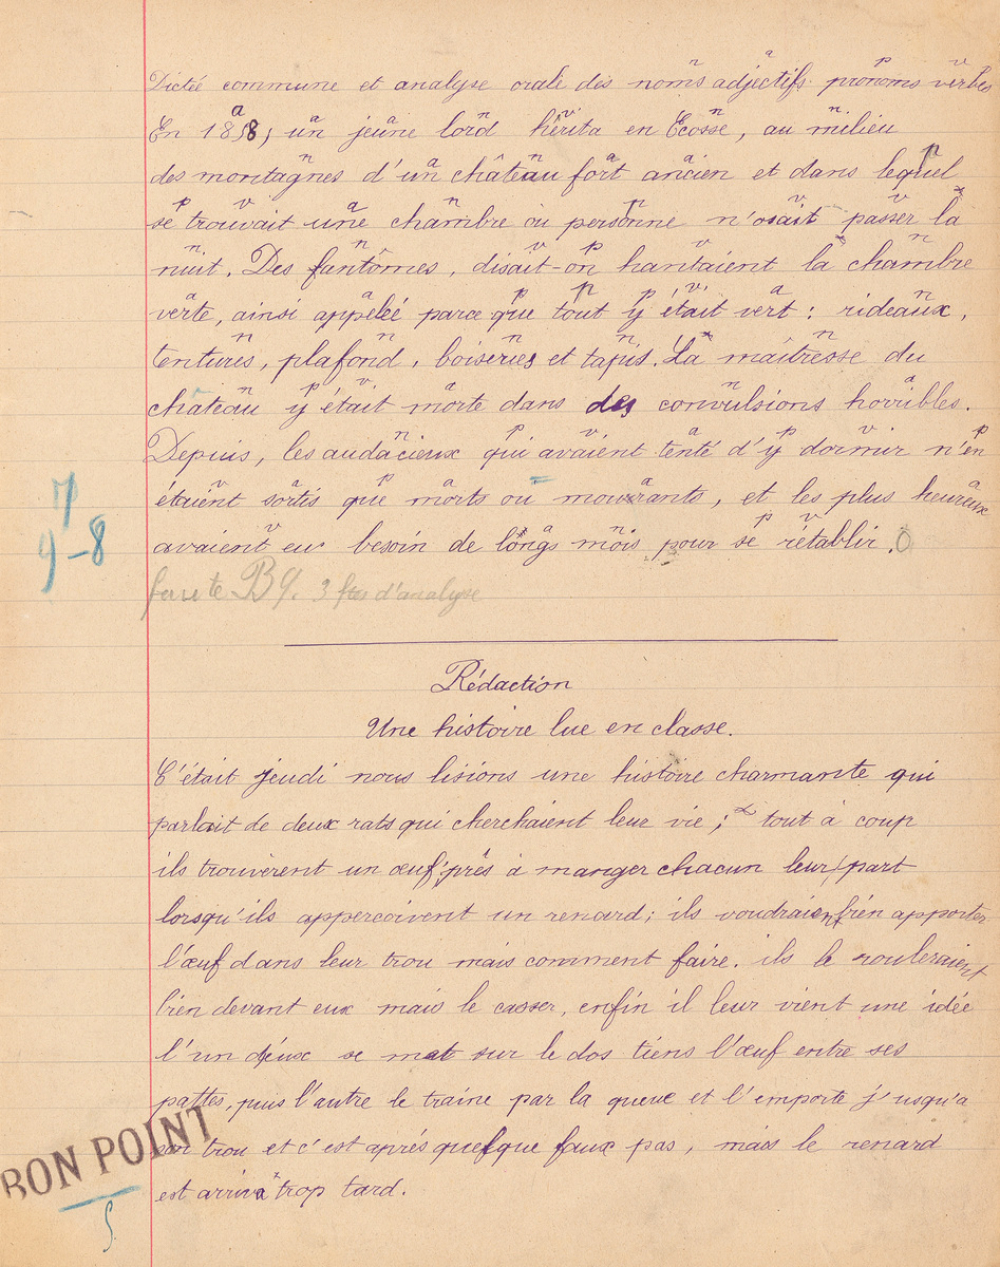 Dictée commune et analyse orale des noms adjectifs pronoms verbes
En 1858, un jeune lord hérita en Écosse, au milieu
des montagnes d'un château fort ancien et dans lequel
se trouvait une chambre où personne n'osait passer la
nuit. Des fantômes, disait-on hantaient la chambre
verte, ainsi appelée parce que tout y était vert : rideaux,
tentures, plafond, boiseries et tapis. La maîtresse du
château y était morte dans des convulsions horribles.
Depuis, les audacieux qui avaient tenté d'y dormir n'en
étaient sortis que morts ou mourants, et les plus heureux
avaient eu besoin de longs mois pour se rétablir. 0
faute B 9. 3 ftes d'analyse
7
9-8
Rédaction
Une histoire lue en classe.
C'était jeudi nous lisions une histoire charmante qui
parlait de deux rats qui cherchaient leur vie ; tout à coup
ils trouvèrent un œuf, près à manger chacun leur part
lorsqu'ils apperçoivent un renard ; ils voudraient bien apporter
l'œuf dans leur trou mais comment faire. ils le rouleraient
bien devant eux mais le casser, enfin il leur vient une idée
l'un d'eux se met sur le dos tiens l'œuf entre ses
pattes, puis l'autre le traine par la queue et l'emporte j'usqu'a
trou et c'est après quelque faux pas, mais le renard
est arriva trop tard.
BON POINT
5